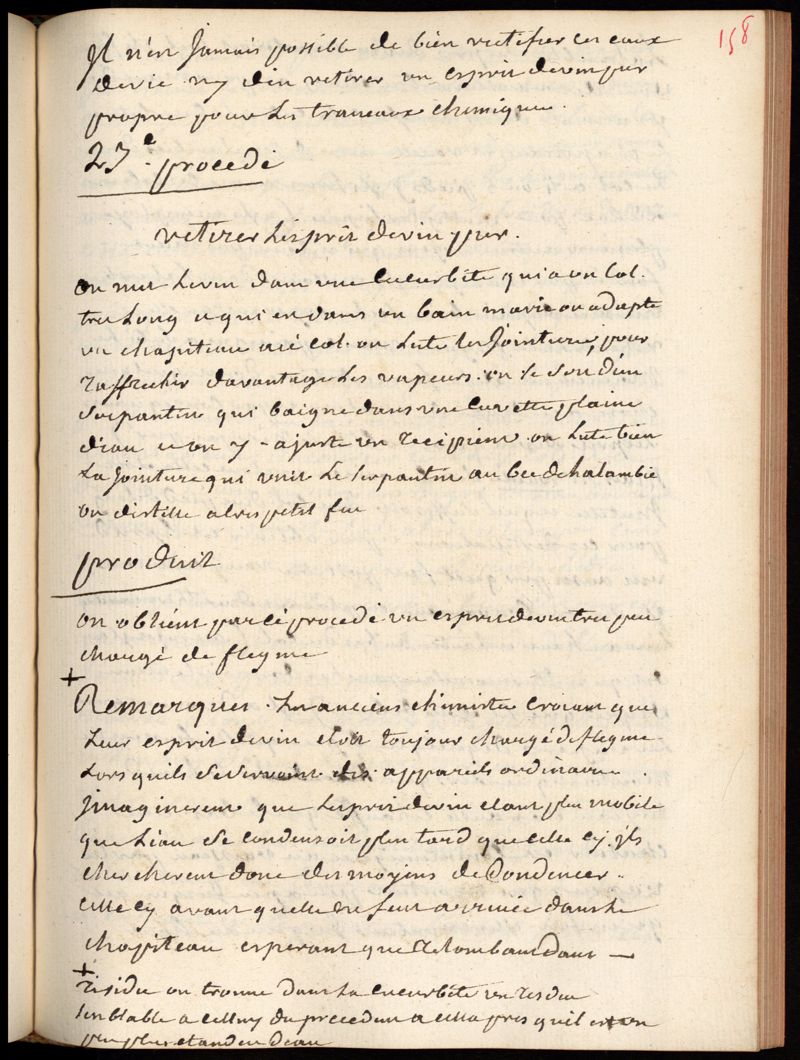 158
Il n'est Jamais possible de bien rectifier ces eaux
devie ny d'en retirer un esprit devin pur
propre pour les traveaux chimiques.
23.e procedé
retirer Lesprit devin pur.
on met Levin dans une Cucurbite qui a un Col.
tres Long et qui est dans un bain marie on adapte
un chapiteau au Col. on Lute les Jointures, pour
raffrechir davantage Les vapeurs. on se sert d'un
Serpantin qui baigne dans une Cuvette plaine
d'eau et on y ajuste un recipient on Lute bien
La Jointure qui unit Le serpantin au bec de halambic
on distille a tres petit feu
produit
on obtient par cé procedé un esprit devin tres peu
chargé de flegme
+
Remarques. Les anciens chimistes croiant que
Leur esprit devin etoit toujour chargé de flegme
Lors quils se servoint des appareils ordinaires
Jmaginerent que Lesprit devin etant plus mobile
que L'eau se condensoit plus tard que Celle cy. jls
chercherent donc des moyens de Condencer.
Celle cy avant quelle ne feut arrivée dans Le
chapiteau esperant que retombant dans —
+
residu on trouve dans La Cucurbite un residu
senblable a celluy du precedent a cella pres quil est un
peu plus etandeu deau